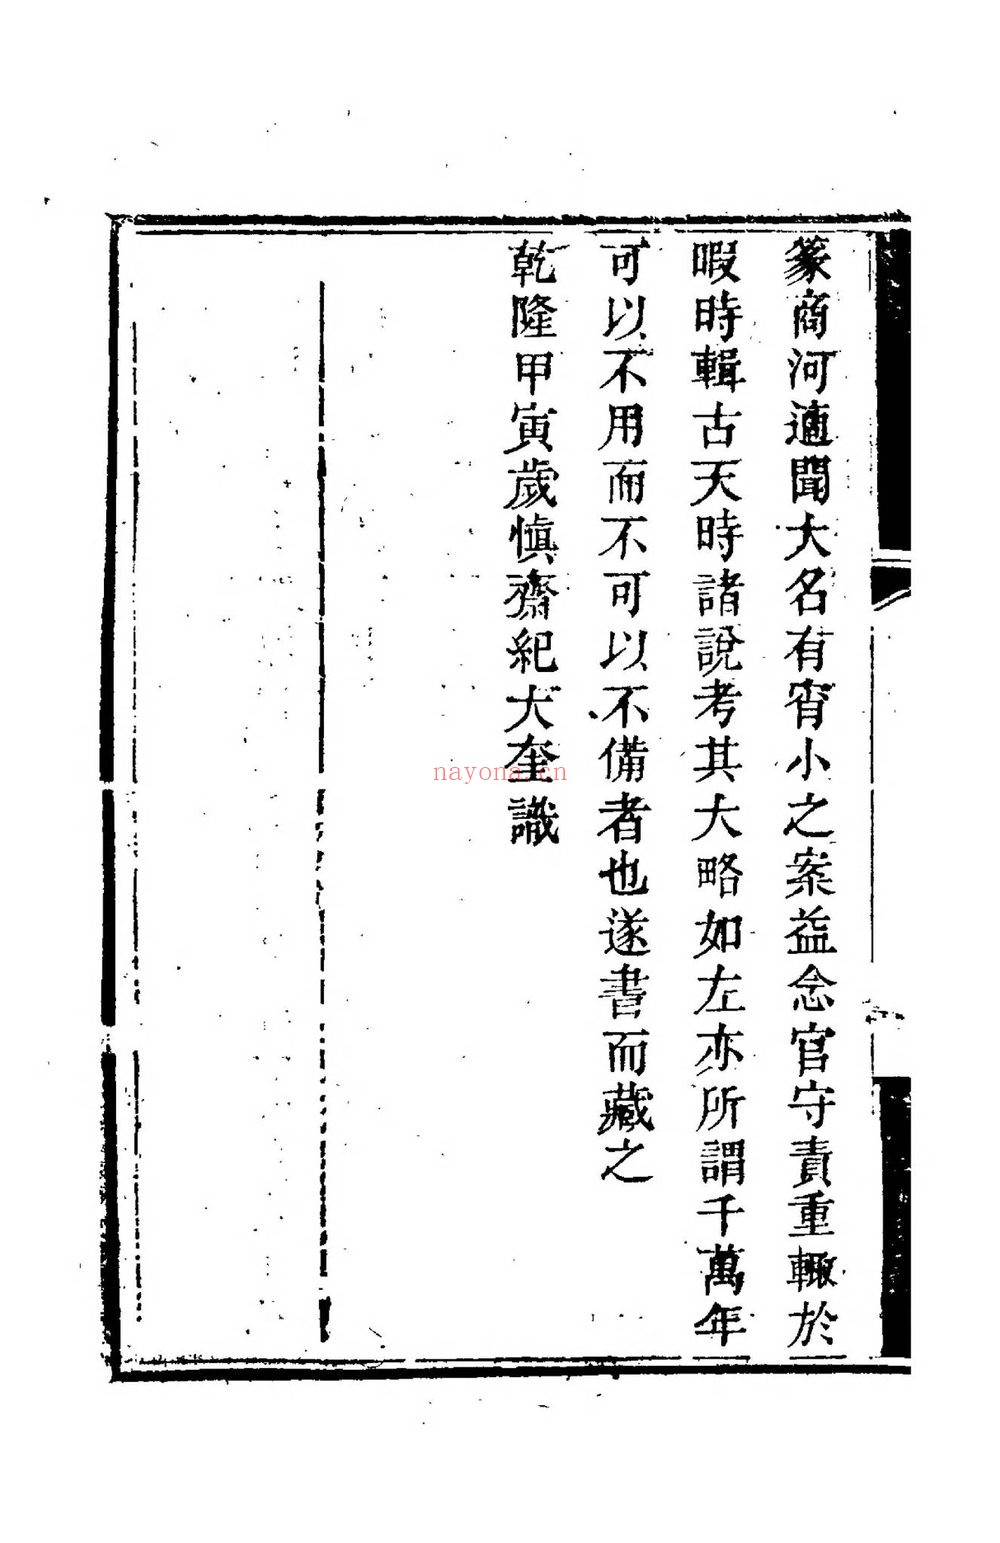 篆商河適聞大名有宵小之案益念官守責重輙於
暇時輯古天時諸說考其大略如左亦所謂千萬年
可以不用而不可以不備者也遂書而藏之
乾隆甲寅歲慎齋紀大奎識
nayona.cn